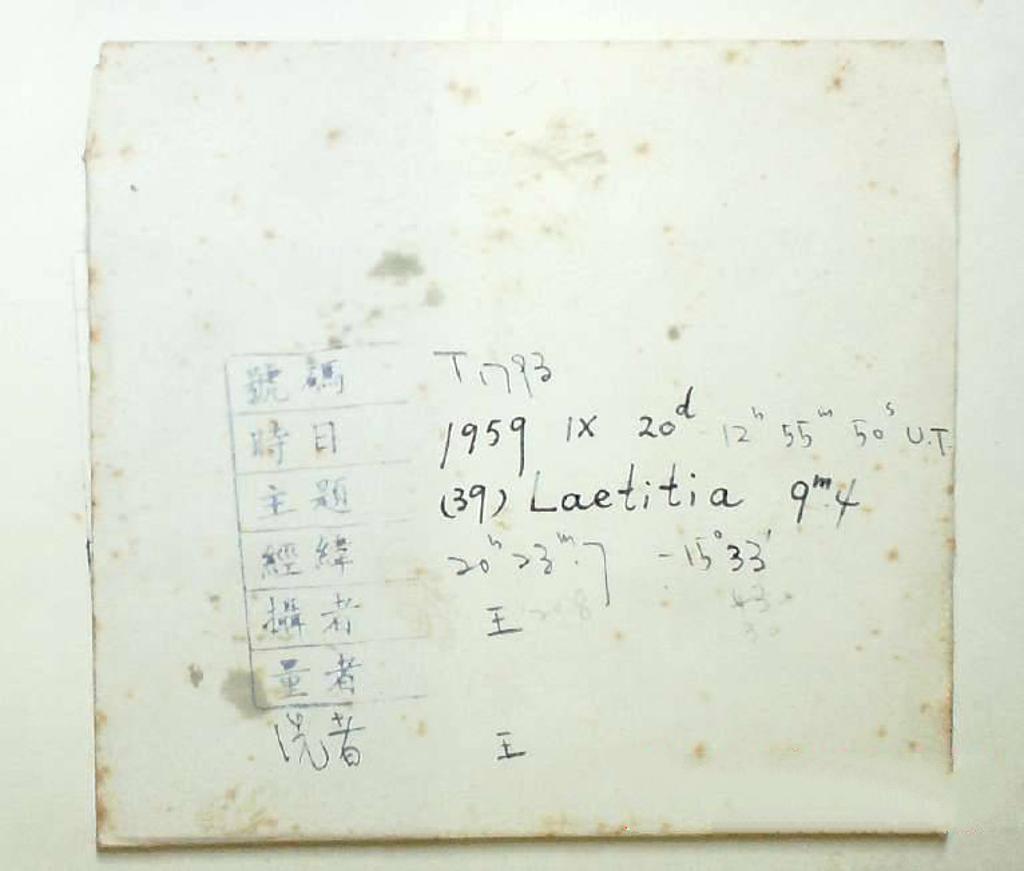 號碼 T1793
時日 1959 IX 20ᵈ 12ʰ 55ᵐ 50ˢ U.T.
主題 (39) Laetitia 9ᵐ.4
經緯 20ʰ 23ᵐ.7 -15°33'
攝者 王
量者
洗者 王